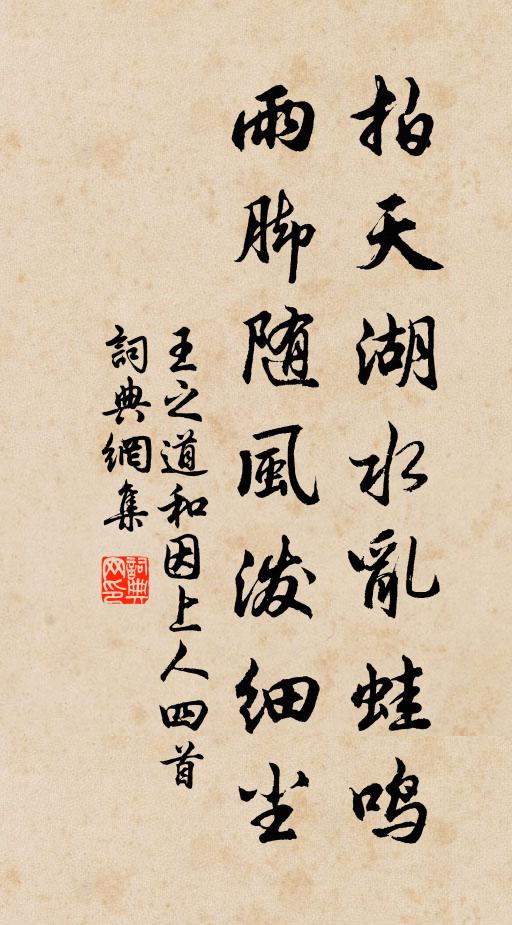 拍天湖水亂蛙鸣
雨脚随風泼細尘
王之道和因上人四首
詞典網集
詞典网印